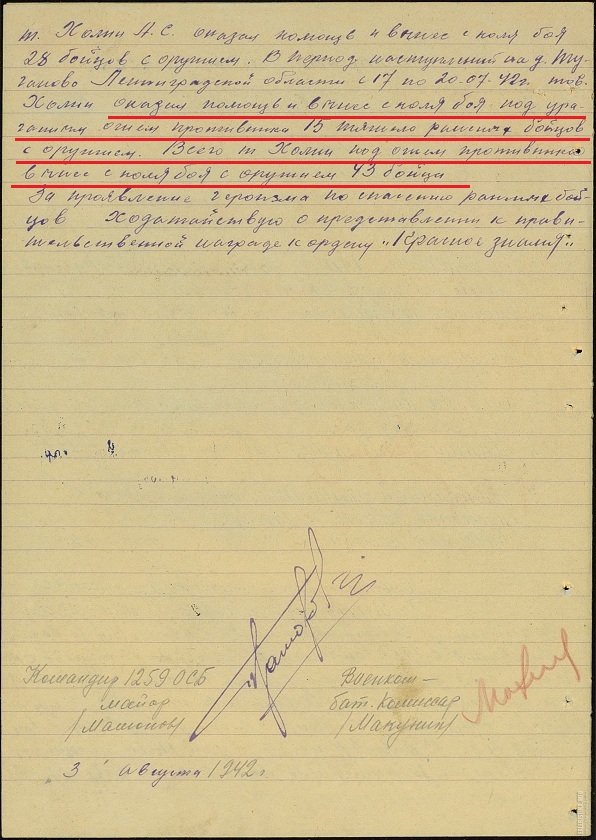 т. Холин А.С. оказал помощь и вынес с поля боя
28 бойцов с оружием. В период наступлений на д. Ту-
ганово Ленинградской области с 17 по 20.07.42г. тов.
Холин оказал помощь и вынес с поля боя под ура-
ганным огнем противника 15 тяжело раненых бойцов
с оружием. Всего т Холин под огнем противника
вынес с поля боя с оружием 43 бойца
За проявление героизма по спасению раненых бой-
цов Ходатайствую о представлении к прави-
тельственной награде к ордену „Красное знамя".
Командир 1259 ОСБ
майор
Военком—
бат. Комиссар
/Макунин/
„3" августа 1942г.